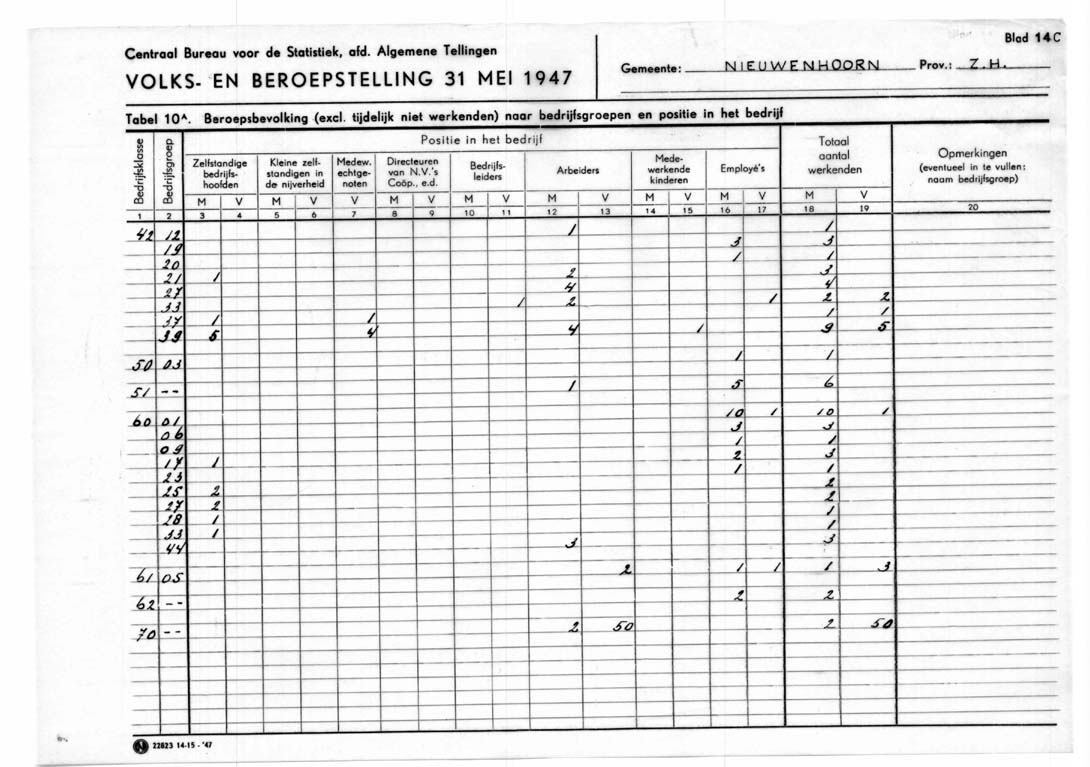 Blad 14C
Centraal Bureau voor de Statistiek, afd. Algemene Tellingen
VOLKS- EN BEROEPSTELLING 31 MEI 1947
Gemeente: NIEUWENHOORN Prov.: Z.H.
Tabel 10^. Beroepsbevolking (excl. tijdelijk niet werkenden) naar bedrijfsgroepen en positie in het bedrijf
Bedrijfsklasse Bedrijfsgroep Positie in het bedrijf Totaal aantal werkenden Opmerkingen (eventueel in te vullen: naam bedrijfsgroep)
Zelfstandige bedrijfs-hoofden Kleine zelf-standigen in de nijverheid Medew. echtge-noten Directeuren van N.V.'s Coöp., e.d. Bedrijfs-leiders Arbeiders Mede-werkende kinderen Employé's
M V M V V M V M V M V M V M V M V
1 2 3 4 5 6 7 8 9 10 11 12 13 14 15 16 17 18 19 20
42 12 1 1
19 3 3
20 1 1
21 1 2 3
27 4 4
33 1 2 1 2 2
37 1 1 1 1
39 5 4 4 1 9 5
50 03 1 1
51 -- 1 5 6
60 01 10 1 10 1
06 3 3
09 1 1
17 1 2 3
23 1 1
25 2 2
27 2 2
28 1 1
33 1 1
44 3 3
61 05 2 1 1 1 3
62 -- 2 2
70 -- 2 50 2 50
22823 14-15 - '47